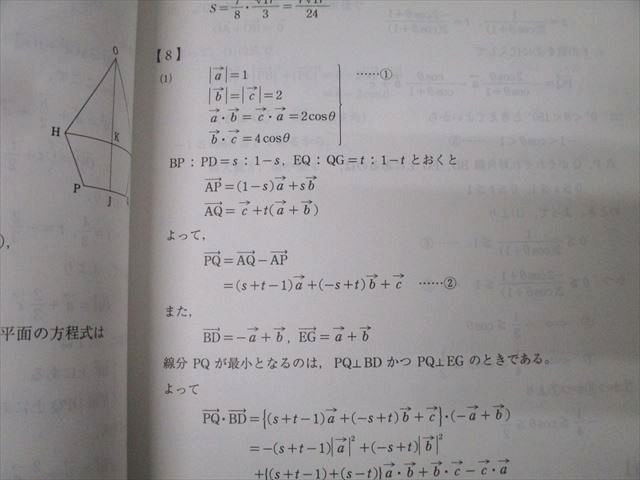 S = 7/8 · √17/3 = 7√17/24
【8】
(1) |a⃗|=1 ……①
|b⃗|=|c⃗|=2
a⃗·b⃗=c⃗·a⃗=2cosθ
b⃗·c⃗=4cosθ
BP：PD=s：1-s, EQ：QG=t：1-t とおくと
AP⃗=(1-s)a⃗+sb⃗
AQ⃗=c⃗+t(a⃗+b⃗)
よって,
PQ⃗=AQ⃗-AP⃗
=(s+t-1)a⃗+(-s+t)b⃗+c⃗ ……②
また,
BD⃗=-a⃗+b⃗, EG⃗=a⃗+b⃗
線分 PQ が最小となるのは, PQ⊥BD かつ PQ⊥EG のときである。
よって
PQ⃗·BD⃗={(s+t-1)a⃗+(-s+t)b⃗+c⃗}·(-a⃗+b⃗)
=-(s+t-1)|a⃗|²+(-s+t)|b⃗|²
+{(s+t-1)+(s-t)}a⃗·b⃗+b⃗·c⃗-c⃗·a⃗
O
H
K
P
J
),
平面の方程式は